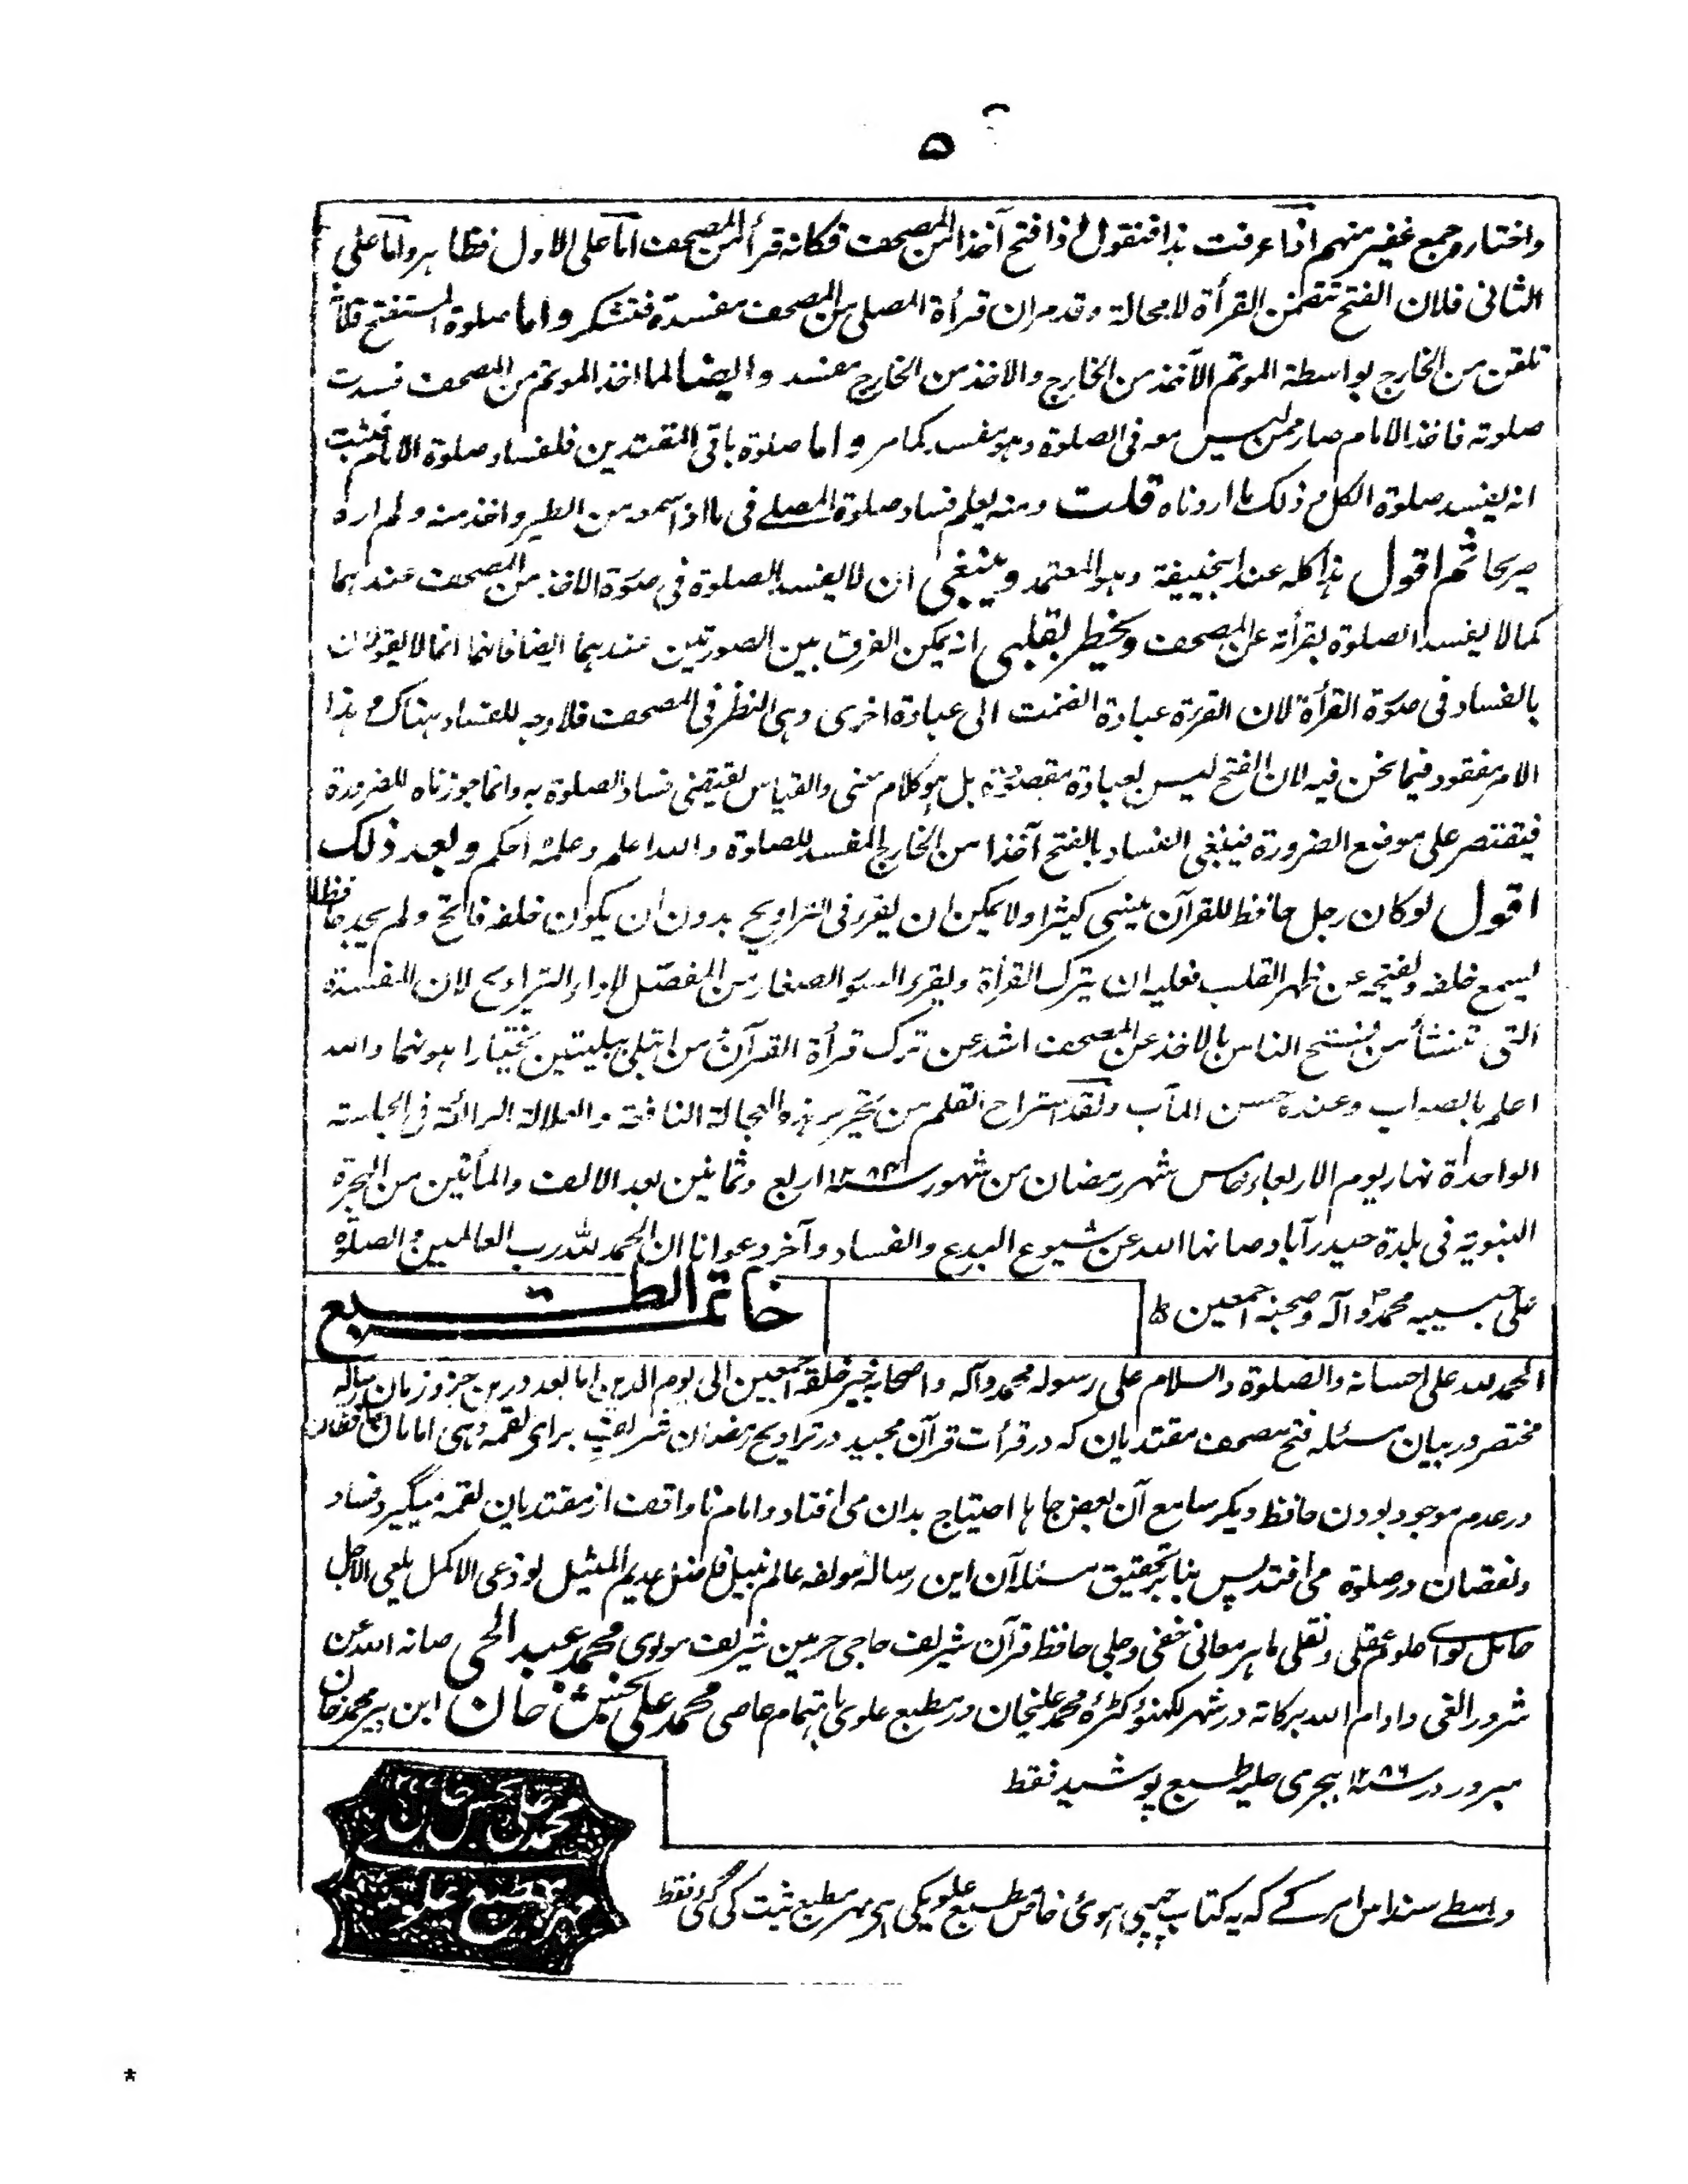 ٥
واختاره جمع غفير منهم اذا عرفت هذا فنقول اذا فتح آخذا من المصحف فكانه قرأ من المصحف اما على الاول فظاهر واما على
الثانى فلان الفتح تتضمن القرأة لا محالة وقد مر ان قرأة المصلى من المصحف مفسدة فتشكر واما صلوة المستفتح فلانه
تلقن من الخارج بواسطة الموتم الآخذ من الخارج والاخذ من الخارج مفسد وايضا لما اخذ الموتم من المصحف فسدت
صلوته فاخذ الامام صار ممن ليس معه فى الصلوة وهو مفسد كما مر واما صلوة باقى المقتدين فلفساد صلوة الامام فثبت
انه يفسد صلوة الكل وذلك ما اردناه قلت ومنه يعلم فساد صلوة المصلے فى ما اذا سمعه من الطير واخذ منه ولم اره
صريحا ثم اقول هذا كله عند ابيحنيفة وهو المعتمد وينبغى ان لا يفسد الصلوة فى صورة الاخذ من المصحف عندهما
كما لا يفسد الصلوة بقرأته عن المصحف ويخطر بقلبى انه يمكن الفرق بين الصورتين عندهما ايضا فانهما انما لا يقولان
بالفساد فى صورة القرأة لان القرءة عبادة انضمت الى عبادة اخرى وهى النظر فى المصحف فلا وجه للفساد هناك وهذا
الامر مفقود فيما نحن فيه لان الفتح ليس بعبادة مقصودة بل هو كلام معنى والقياس يقتضى فساد الصلوة به وانما جوزناه للضرورة
فيقتصر على موضع الضرورة فينبغى الفساد بالفتح آخذا من الخارج المفسد للصلوة والله اعلم وعلمه احكم وبعد ذلك
اقول لو كان رجل حافظ للقرآن ينسى كثيرا ولا يمكن ان يقرء فى التراويح بدون ان يكون خلفه فاتح ولم يجد حافظا
يسمع خلفه ويفتحه عن ظهر القلب فعليه ان يترك القرأة ويقرء السور الصغار من المفصل لاداء التراويح لان المفسدة
التى تنشأ من فتح الناس بالاخذ عن المصحف اشد عن ترك قرأة القرآن ومن ابتلى ببليتين يختار اهونهما والله
اعلم بالصواب وعنده حسن المآب ولقد استراح القلم من تحرير هذه العجالة النافعة والعلالة الرائقة فى الجلسة
الواحدة نهار يوم الاربعاء خامس شهر رمضان من شهور سنه ١٢٨٤ اربع وثمانين بعد الالف والمأتين من الهجرة
النبوية فى بلدة حيدرآباد صانها الله عن شيوع البدع والفساد وآخر دعوانا ان الحمد لله رب العالمين والصلوة
على حبيبه محمد وآله وصحبه اجمعين ط
خاتمة الطبع
الحمد لله على احسانه والصلوة والسلام على رسوله محمد وآله واصحابه خير خلقه اجمعين الى يوم الدين اما بعد درين جزو زمان رساله
مختصر در بيان مسئله فتح مصحف مقتديان كه در قرأت قرآن مجيد در تراويح رمضان شريف براى لقمه دهى امامان حافظان
در عدم موجود بودن حافظ ديگر سامع آن بعض جاها احتياج بدان مى افتاد و امام ناواقف از مقتديان لقمه ميگيرد فساد
و نقصان در صلوة مى افتد پس بنا بر تحقيق مسئله آن اين رساله مولفه عالم نبيل فاضل عديم المثيل لوذعى الاكمل يلمعى الاجل
حامل لواے علوم عقلى و نقلى ماهر معانى خفى و جلى حافظ قرآن شريف حاجى حرمين شريف مولوى محمد عبد الحى صانه الله عن
شرور الغى وادام الله بركاته در شهر لكهنؤ كٹره محمد عليخان در مطبع علوى باهتمام عاصى محمد على بخش خان ابن پير محمد خان
مبرور در سنه ١٢٨٦ هجرى حليه طبع پوشيد فقط
واسطے سند اس امر كے كه يه كتاب چهپى هوئى خاص مطبع علوى كى هى مهر مطبع ثبت كى گئى فقط
محمد على بخش خان
*